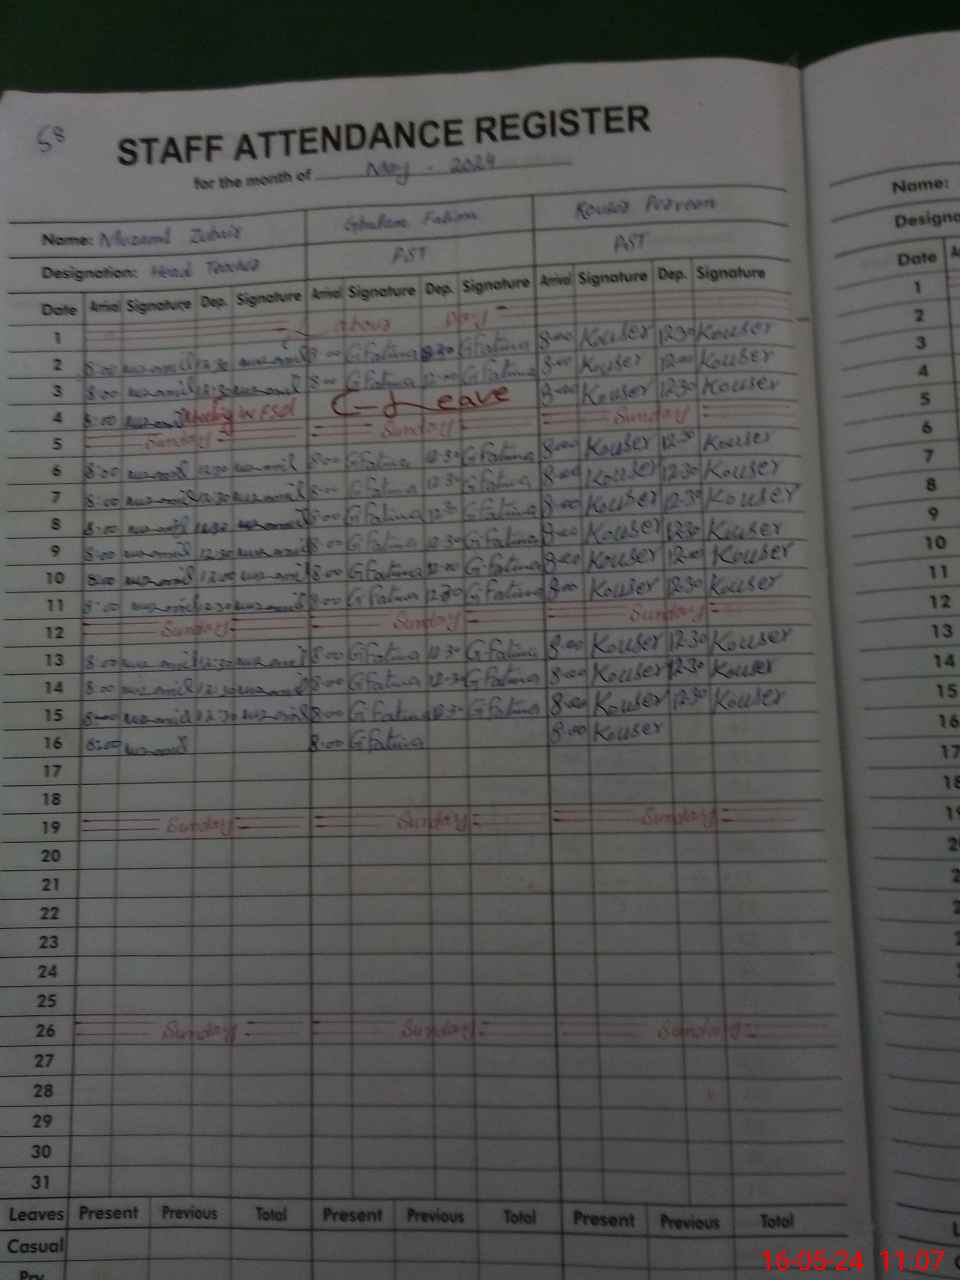 58
STAFF ATTENDANCE REGISTER
for the month of May - 2024
Name: Muzamil Zubair Ghulam Fatima Kousar Praveen
Designation: Head Teacher PST PST
Date Arrival Signature Dep. Signature Arrival Signature Dep. Signature Arrival Signature Dep. Signature
1 Labour Day
2 8:00 muzamil 12:30 muzamil 8:00 GFatima 12:30 GFatima 8:00 Kouser 12:30 Kouser
3 8:00 muzamil 12:30 muzamil 8:00 GFatima 12:00 GFatima 8:00 Kouser 12:00 Kouser
4 8:00 muzamil Meeting C-Leave 8:00 Kouser 12:30 Kouser
5 Sunday Sunday Sunday
6 8:00 muzamil 12:30 muzamil 8:00 GFatima 12:30 GFatima 8:00 Kouser 12:30 Kouser
7 8:00 muzamil 12:30 muzamil 8:00 GFatima 12:30 GFatima 8:00 Kouser 12:30 Kouser
8 8:00 muzamil 12:30 muzamil 8:00 GFatima 12:30 GFatima 8:00 Kouser 12:30 Kouser
9 8:00 muzamil 12:30 muzamil 8:00 GFatima 12:30 GFatima 8:00 Kouser 12:30 Kouser
10 8:00 muzamil 12:00 muzamil 8:00 GFatima 12:00 GFatima 8:00 Kouser 12:00 Kouser
11 8:00 muzamil 12:30 muzamil 8:00 GFatima 12:30 GFatima 8:00 Kouser 12:30 Kouser
12 Sunday Sunday Sunday
13 8:00 muzamil 12:30 muzamil 8:00 GFatima 12:30 GFatima 8:00 Kouser 12:30 Kouser
14 8:00 muzamil 12:30 muzamil 8:00 GFatima 12:30 GFatima 8:00 Kouser 12:30 Kouser
15 8:00 muzamil 12:30 muzamil 8:00 GFatima 12:30 GFatima 8:00 Kouser 12:30 Kouser
16 8:00 muzamil 8:00 GFatima 8:00 Kouser
17
18
19 Sunday Sunday Sunday
20
21
22
23
24
25
26 Sunday Sunday Sunday
27
28
29
30
31
Leaves Present Previous Total Present Previous Total Present Previous Total
Casual
Name:
Date
1
2
3
4
5
6
7
8
9
10
11
12
13
14
15
16
17
16-05-24 11:07